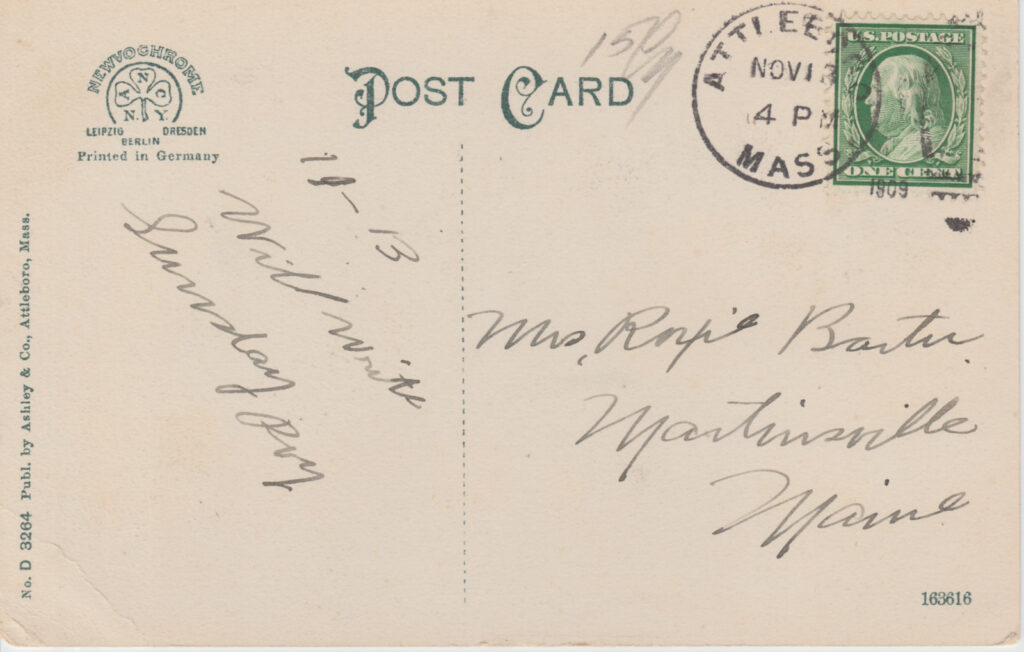 NEWVOCHROME
A N C
N. Y.
LEIPZIG DRESDEN
BERLIN
Printed in Germany
POST CARD
ATTLEB
NOV 13
4 P
MASS
1909
U.S. POSTAGE
ONE CENT
No. D 3264 Publ. by Ashley & Co., Attleboro, Mass.
11-13
Will write
Sunday Roy
Mrs. Roxie Barter
Martinsville
Maine
163616